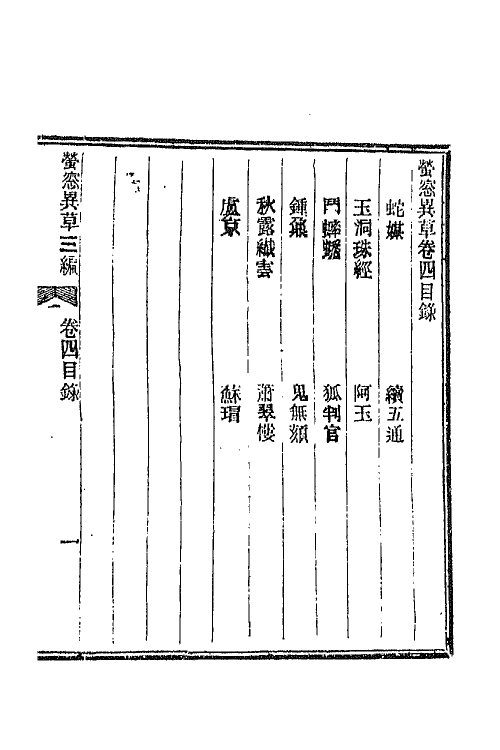 螢窓異草卷四目錄
蛇媒
續五通
玉洞珠經
阿玉
鬥蟋蟀
狐判官
鍾鼎
鬼無頦
秋露纖雲
蕭翠樓
虞京
蘇瑁
螢窓異草三編
卷四目錄
一